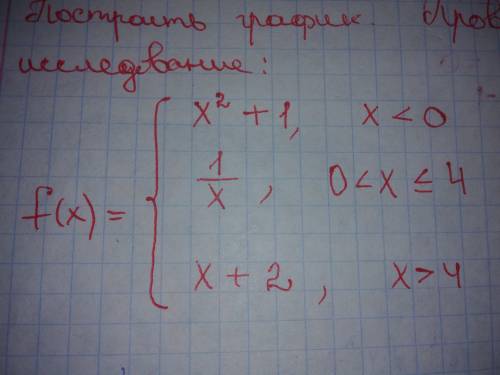 Построить график. Пров
исследование:
x² + 1, x < 0
f(x) = { 1/x, 0 < x ≤ 4
x + 2, x > 4